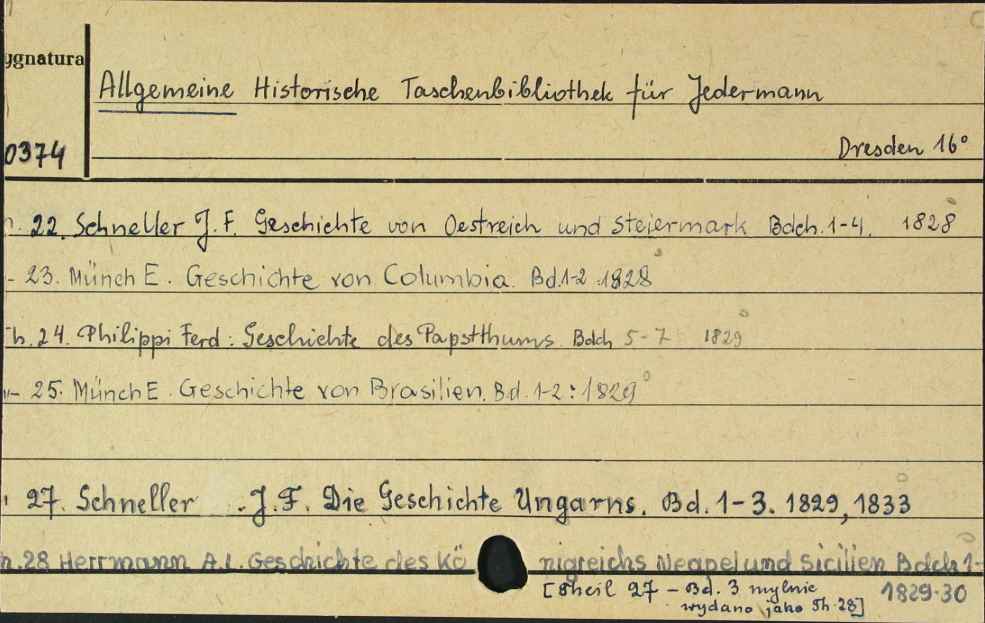 ygnatura
Allgemeine Historische Taschenbibliothek für Jedermann
0374
Dresden 16°
h. 22. Schneller J. F. Geschichte von Oestreich und Steiermark Bdch. 1-4. 1828
- 23. Münch E. Geschichte von Columbia. Bd. 1-2 1828
Th. 24. Philippi Ferd: Geschichte des Papstthums. Bdch 5-7 1829
- 25. Münch E. Geschichte von Brasilien. Bd. 1-2: 1829
27. Schneller J. F. Die Geschichte Ungarns. Bd. 1-3. 1829, 1833
h. 28 Herrmann A. L. Geschichte des Königreichs Neapel und Sicilien Bdch 1-
[Theil 27 - Bd. 3 mylnie 1829-30
wydano jako Th. 28]